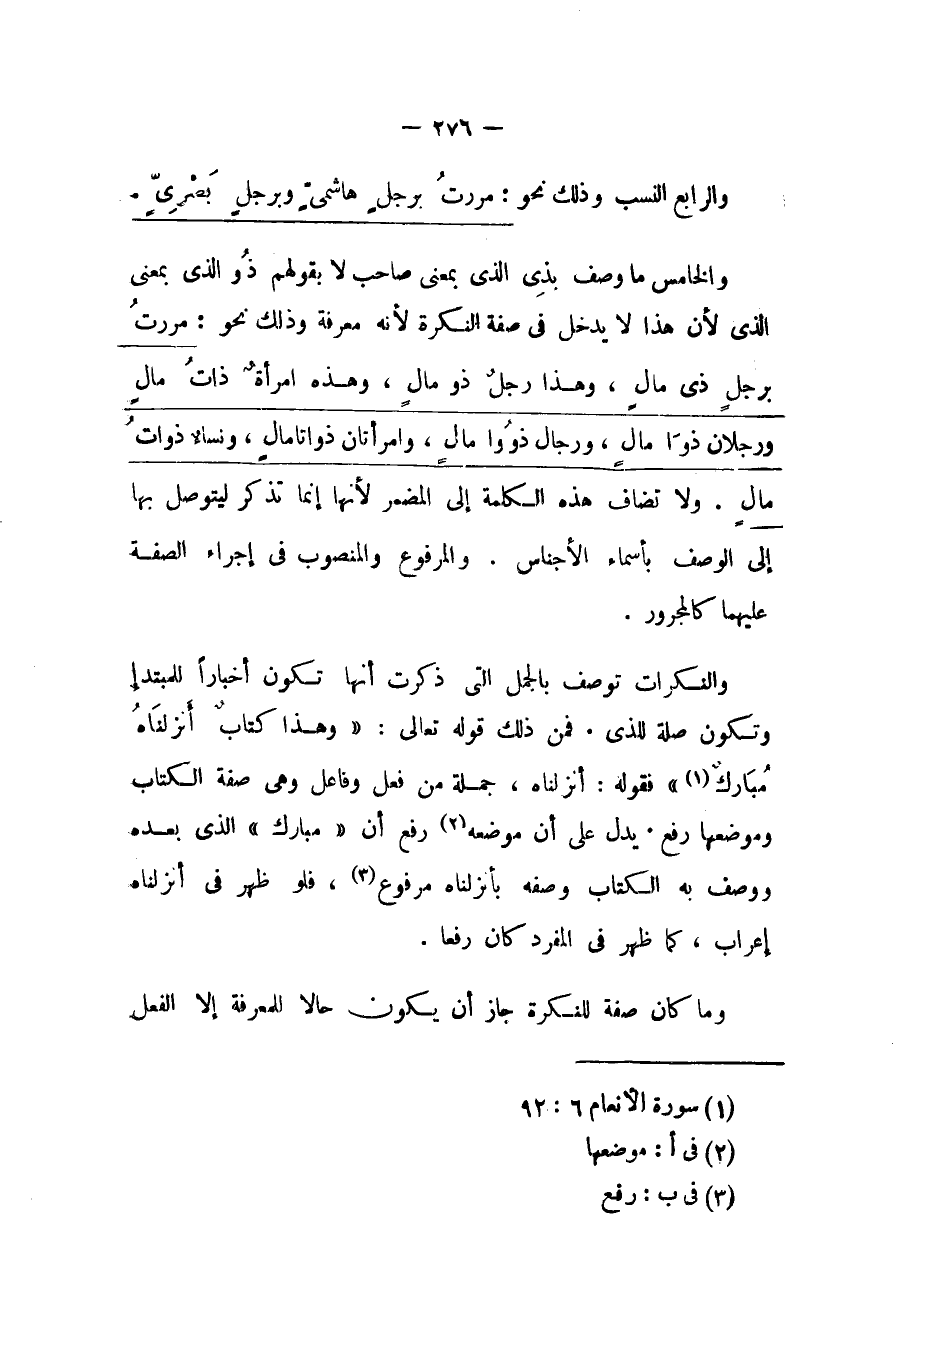 — ٢٧٦ —
والرابع النسب وذلك نحو : مررتُ برجلٍ هاشمىٍّ وبرجلٍ بَصْرِىٍّ .
والخامس ما وصف بذِى الذى بمعنى صاحب لا بقولهم ذُو الذى بمعنى
الذى لأن هذا لا يدخل فى صفة النكرة لأنه معرفة وذلك نحو : مررتُ
برجلٍ ذى مالٍ ، وهذا رجلٌ ذو مالٍ ، وهذه امرأةٌ ذاتُ مالٍ
ورجلان ذوَا مالٍ ، ورجال ذوُوا مالٍ ، وامرأتان ذواتامالٍ ، ونساء ذواتُ
مالٍ . ولا تضاف هذه الكلمة إلى المضمر لأنها إنما تذكر ليتوصل بها
إلى الوصف بأسماء الأجناس . والمرفوع والمنصوب فى إجراء الصفة
عليهما كالمجرور .
والنكرات توصف بالجمل التى ذكرت أنها تكون أخباراً للمبتدإ
وتكون صلة للذى . فمن ذلك قوله تعالى : « وهذا كتابٌ أَنزلنَاهُ
مُبَارك(١) » فقوله : أنزلناه ، جملة من فعل وفاعل وهى صفة الكتاب
وموضعها رفع . يدل على أن موضعه(٢) رفع أن « مبارك » الذى بعده
ووصف به الكتاب وصفه بأنزلناه مرفوع(٣) ، فلو ظهر فى أنزلناه
إعراب ، كما ظهر فى المفرد كان رفعا .
وما كان صفة للنكرة جاز أن يكون حالا للمعرفة إلا الفعل
(١) سورة الأنعام ٦ : ٩٢
(٢) فى أ : موضعها
(٣) فى ب : رفع